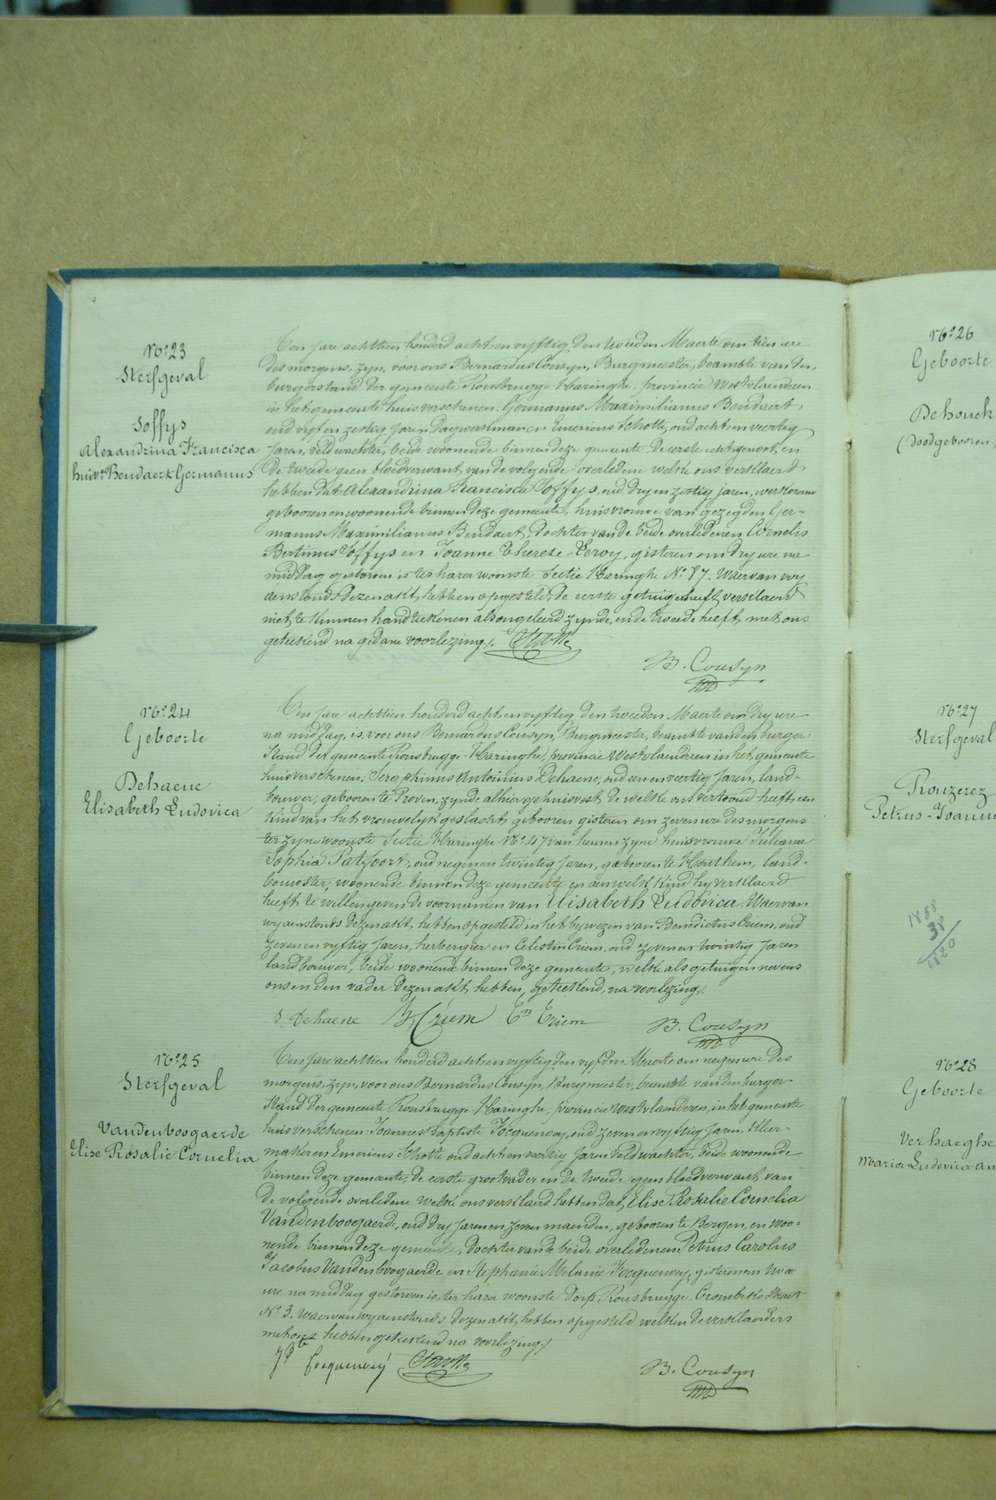 No. 23
Sterfgeval
Soffys
Alexandrina Francisca
huisv. Bendaert Germanus
Den jare achttien honderd acht en vyftig den tweeden Maerte om tien ure
des morgens, zyn, voor ons Bernardus Cousyn, Burgmeester, beambte van den
burgerstand der gemeente Rousbrugge-Haringhe, provincie Westvlaenderen
in het gemeente huis verschenen Germanus Maximilianus Bendaert,
oud vyf en zestig jaren dagwerkman en Emerinus Schotte, oud acht en veertig
jaren, veldwachter, beide woonende binnen deze gemeente, de eerste echtgenoot, en
de tweede geen bloedverwant van de volgende overledene welke ons verklaerd
hebben dat Alexandrina Francisca Soffys, oud dry en zestig jaren, werkvrouw
geboren en woonende binnen deze gemeente, huisvrouwe van gezegden Ger-
manus Maximilianus Bendaert, dochter van de beide overledenen Cornelis
Bertinus Soffys en Joanne Therese Leroy, gisteren om dry ure na
middag gestorven is ter harer woonste Sectie Haringhe No. 87. Waervan wy
aenstonds dezen akt hebben opgesteld, de eerste getuige heeft verklaerd
niet te kunnen handteekenen als ongeleerd zynde, en de tweede heeft met ons
geteekend na gedane voorlezing.
B. Cousyn
No. 24
Geboorte
Dehaene
Elisabeth Ludovica
Den jare achttien honderd acht en vyftig den tweeden Maerte om dry ure
na middag, is, voor ons Bernardus Cousyn, Burgmeester, beambte van den burger-
stand der gemeente Rousbrugge-Haringhe, provincie Westvlaenderen in het gemeente
huis verschenen Seraphinus Antonius Dehaene, oud een en veertig jaren, land-
bouwer, geboren te Proven, zynde alhier gehuisvest de welke ons vertoond heeft een
kind van het vrouwelyk geslacht, geboren gisteren om zeven ure des morgens
ter zyne woonste Sectie Haringhe No. 47 van hem en zyne huisvrouwe Juliana
Sophia oud negen en twintig jaren, geboren te Houthem, land-
bouwster, woonende binnen deze gemeente en aen welk kind hy verklaerd
heeft te willen geven de voornamen van Elisabeth Ludovica. Waervan
wy aenstonds dezen akt hebben opgesteld in het bywezen van Benedictus Criem, oud
zeven en vyftig jaren, herbergier en Celestin Criem, oud zeven en twintig jaren
landbouwer, beide woonende binnen deze gemeente, welke als getuigen nevens
ons en den vader dezen akt hebben, geteekend, na voorlezing.
S. Dehaene B Criem Cin Criem B. Cousyn
No. 25
Sterfgeval
Vandenboogaerde
Elise Rosalie Cornelia
Den jare achttien honderd acht en vyftig den vyfden Maerte om negen ure des
morgens, zyn, voor ons Bernardus Cousyn, Burgmeester, beambte van den burger-
stand der gemeente Rousbrugge-Haringhe, provincie Westvlaenderen, in het gemeente
huis verschenen Joannes Baptiste Jocquenoy, oud zeven en vyftig jaren,
en Emerinus Schotte oud acht en veertig jaren veldwachter, beide woonende
binnen deze gemeente, de eerste grootvader en de tweede geen bloedverwant van
de volgende overledene welke ons verklaerd hebben dat, Elise Rosalie Cornelia
Vandenboogaerde, oud dry jaren en zeven maenden, geboren te Bergen, en woo-
nende binnen deze gemeente, dochter van de beide overledenen Petrus Carolus
Jacobus Vandenboogaerde en Stephanie Melanie Jocquenoy, gisteren om twee
ure na middag gestorven is, ter hare woonste dorp Rousbrugge, straet
No. 3. waervan wy aenstonds dezen akt, hebben opgesteld welken de verklaerders
met ons hebben geteekend na voorlezing.
B. Cousyn
No. 26
Geboorte
Dehouck
(Doodgeboren
No. 27
Sterfgeval
Rouzerez
Petrus-Joannes
1858
38
1820
No. 28
Geboorte
Verhaeghe
Maria Ludovica